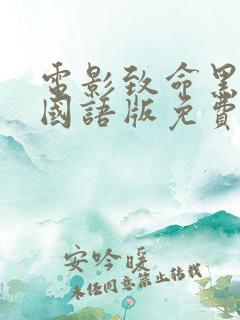 電影致命黑
國語版免費
安吟暖
未经同意禁止转载